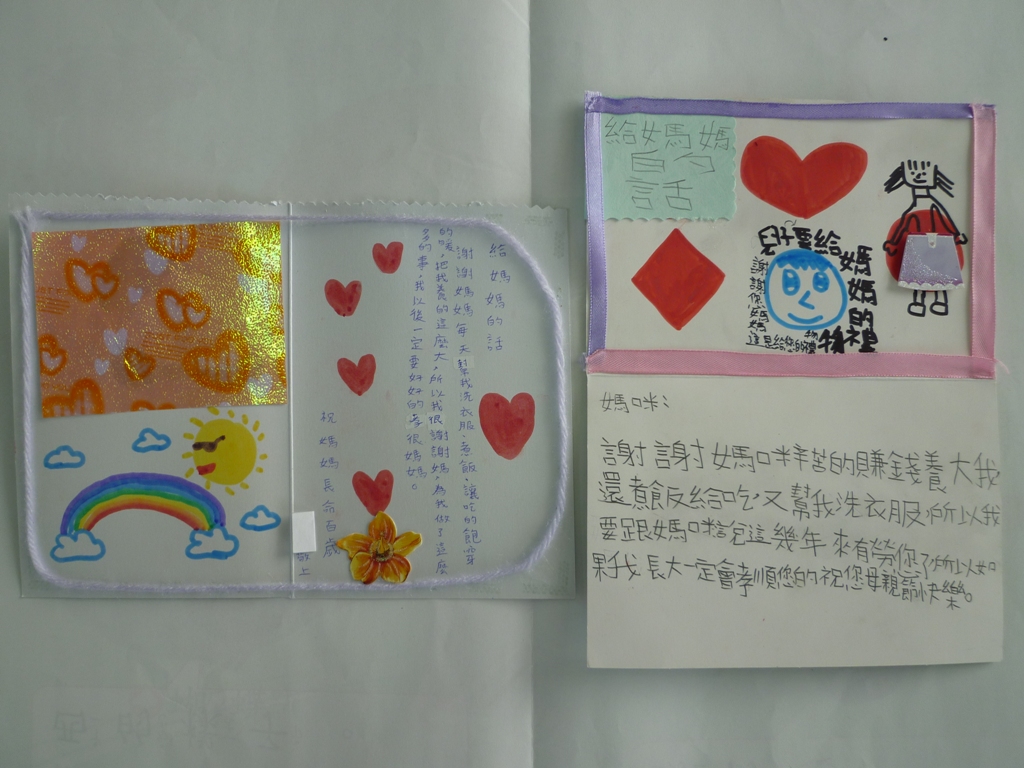 給媽媽的話
謝謝媽媽每天幫我洗衣服、煮飯、讓吃的飽穿
的暖,把我養的這麼大,所以我很謝謝媽媽,為我做了這麼
多的事,我以後一定要好好的孝很媽媽。
祝媽媽長命百歲
敬上
給媽媽
自勺
話
兒子要給
媽媽的禮物
謝謝你媽媽
這是給您的禮物
媽咪:
謝謝媽咪辛苦的賺錢養大我
還煮飯給吃,又幫我洗衣服,所以我
要跟媽咪說這幾年來有勞你了所以如
果我長大一定會孝順您的祝您母親節快樂。